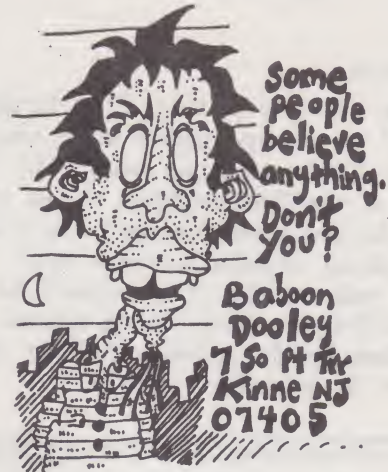 Some
people
believe
anything.
Don't
you?
Baboon
Dooley
7 So Pt Trr
Kinne NJ
07405